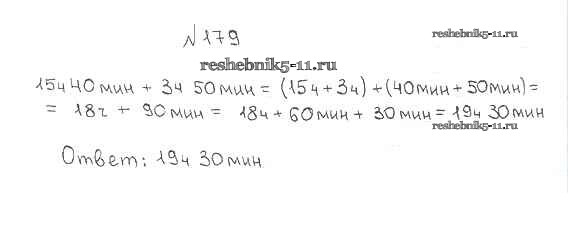 №179
reshebnik5-11.ru
reshebnik5-11.ru
15ч 40 мин + 3ч 50 мин = (15ч + 3ч) + (40мин + 50мин) =
= 18ч + 90мин = 18ч + 60мин + 30мин = 19ч 30мин
reshebnik5-11.ru
Ответ: 19ч 30мин